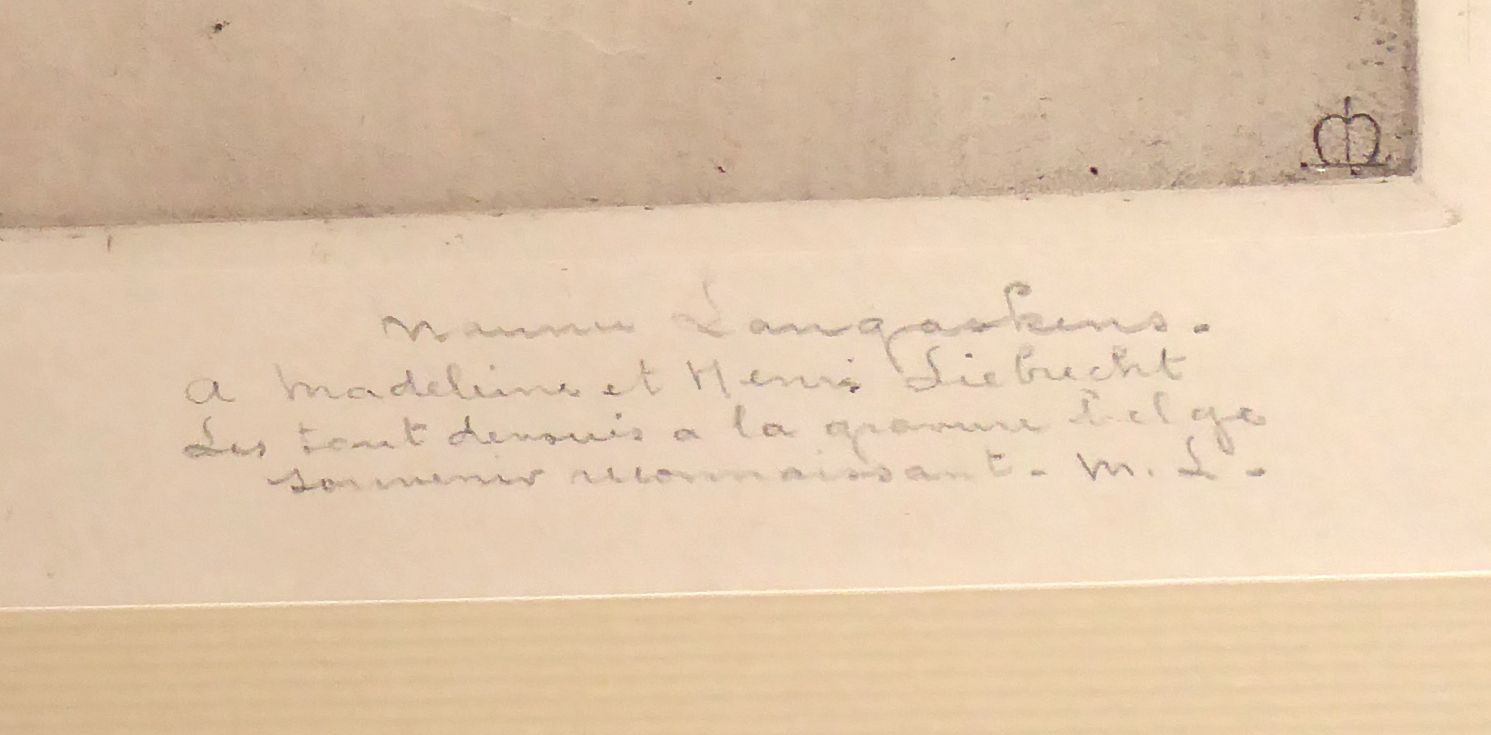 Maurice Langaskens.
A Madeleine et Henri Liebrecht
Les tout devoués a la gravure belge
souvenir reconnaissant. M. L.